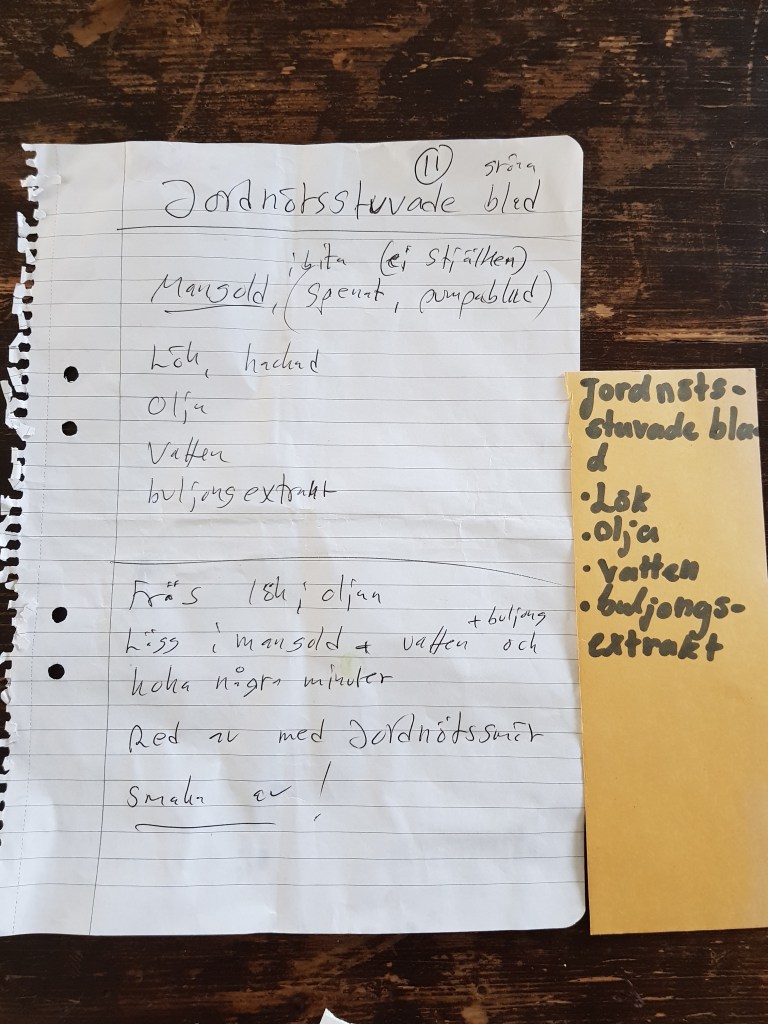 11 gröna
Jordnötsstuvade blad
i bita (ej stjälken)
Mangold, (spenat, pumpablad)
Lök, hackad
Olja
Vatten
buljongextrakt
Fräs lök i oljan
+ buljong
Lägg i mangold + vatten och
koka några minuter
Red av med Jordnötssmör
Smaka av!
Jordnöts-
stuvade bla
d
• Lök
• olja
• vatten
• buljongs-
extrakt